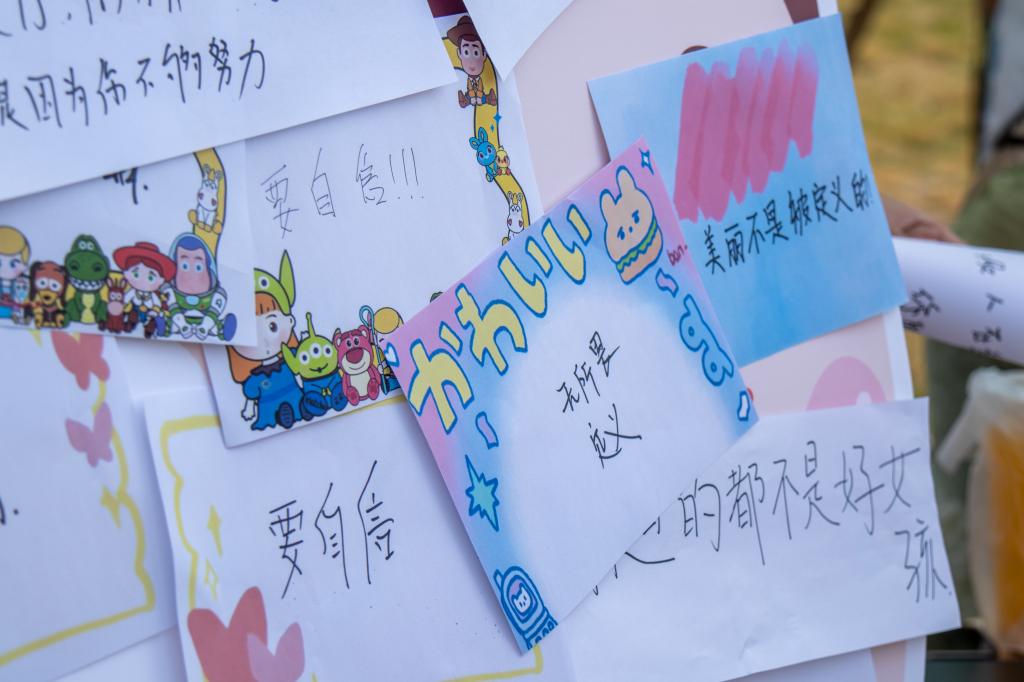 因为你不够努力
要自信!!!
美丽不是被定义的!
かわいい
无所畏
定义
要自信
的都不是好女
孩.